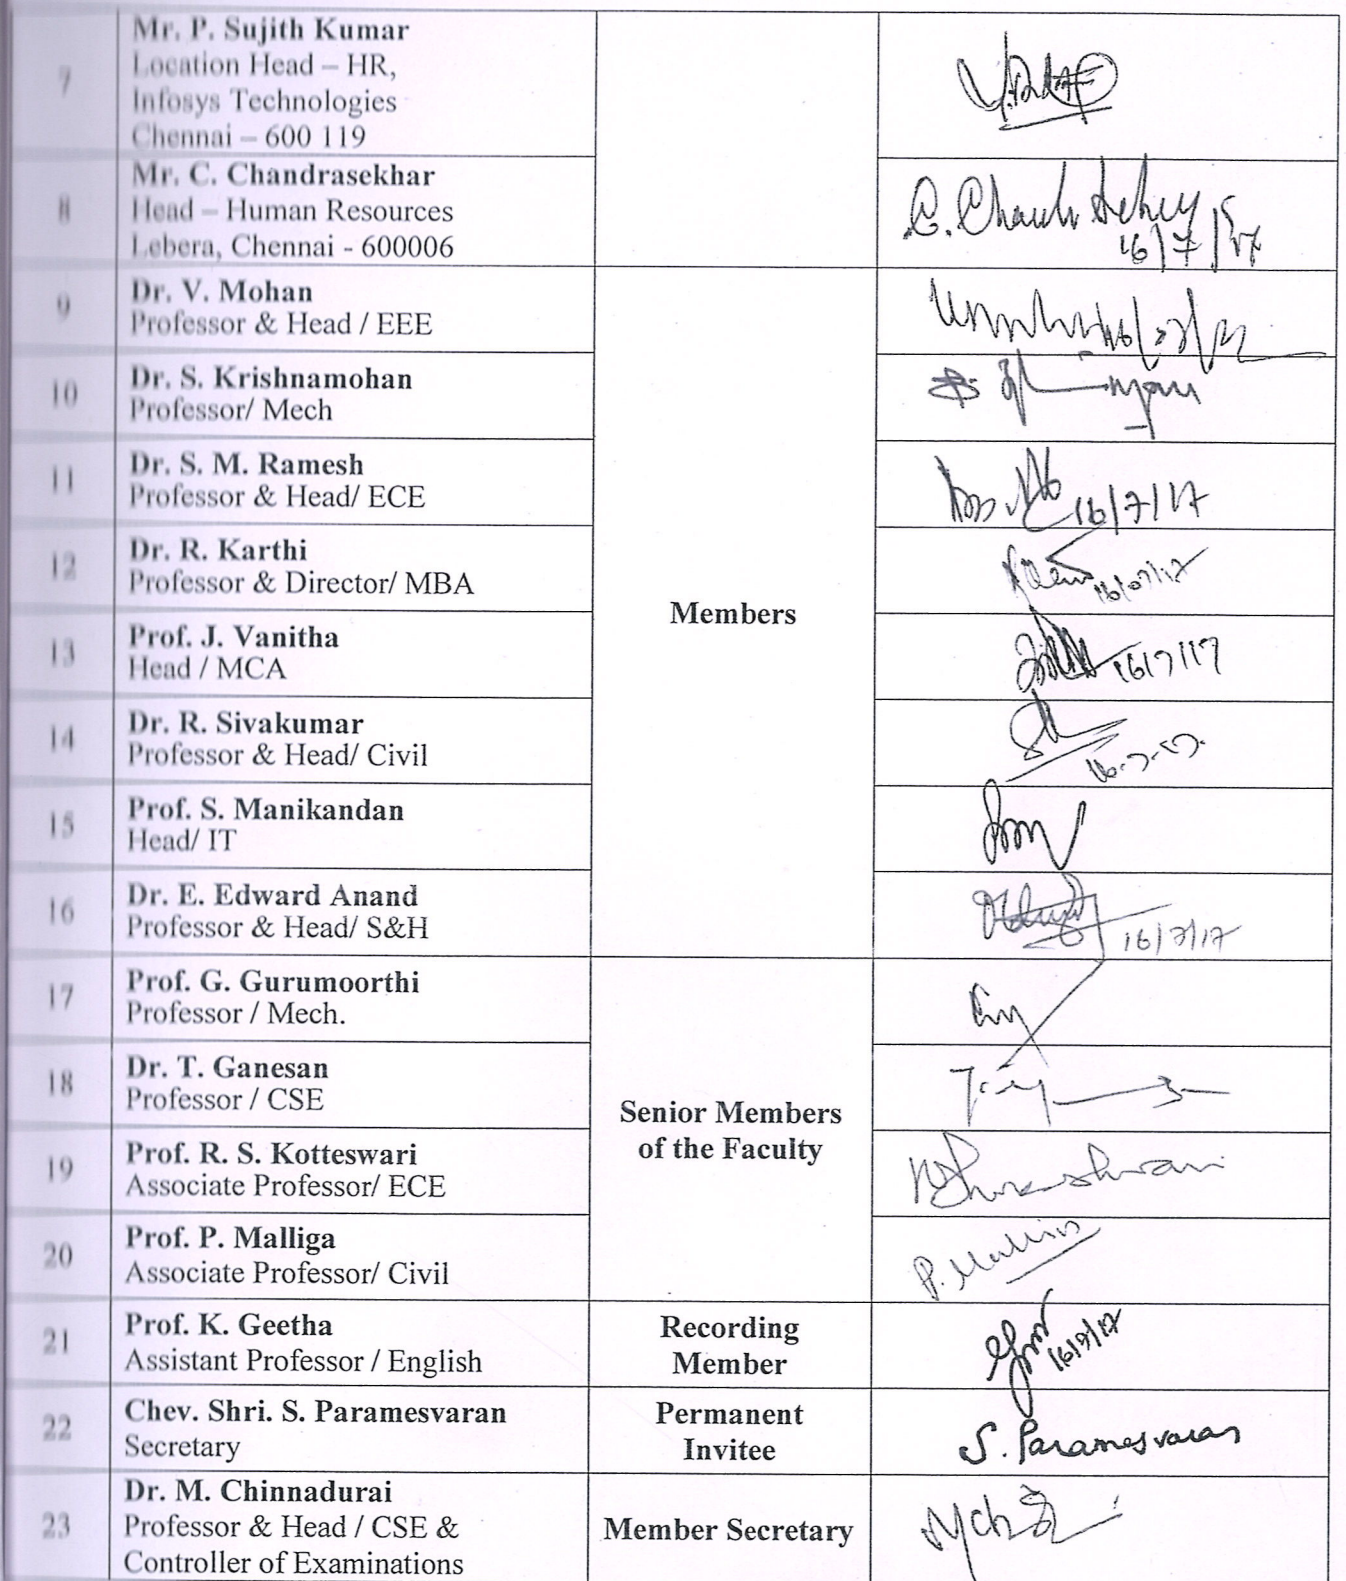 7
Mr. P. Sujith Kumar
Location Head – HR,
Infosys Technologies
Chennai – 600 119
8
Mr. C. Chandrasekhar
Head – Human Resources
Lebera, Chennai - 600006
16/7/17
9
Dr. V. Mohan
Professor & Head / EEE
10
Dr. S. Krishnamohan
Professor/ Mech
11
Dr. S. M. Ramesh
Professor & Head/ ECE
16/7/17
12
Dr. R. Karthi
Professor & Director/ MBA
16/07/17
Members
13
Prof. J. Vanitha
Head / MCA
16/7/17
14
Dr. R. Sivakumar
Professor & Head/ Civil
16-7-17.
15
Prof. S. Manikandan
Head/ IT
16
Dr. E. Edward Anand
Professor & Head/ S&H
16/7/17
17
Prof. G. Gurumoorthi
Professor / Mech.
18
Dr. T. Ganesan
Professor / CSE
Senior Members
of the Faculty
19
Prof. R. S. Kotteswari
Associate Professor/ ECE
20
Prof. P. Malliga
Associate Professor/ Civil
P. Malliga
21
Prof. K. Geetha
Assistant Professor / English
Recording
Member
16/7/17
22
Chev. Shri. S. Paramesvaran
Secretary
Permanent
Invitee
S. Paramesvaran
23
Dr. M. Chinnadurai
Professor & Head / CSE &
Controller of Examinations
Member Secretary